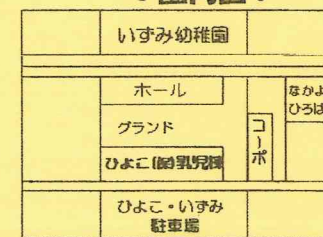 いずみ幼稚園
ホール
グランド
ひよこ(園)乳児棟
コーポ
なかよ
ひろは
ひよこ・いずみ
駐車場